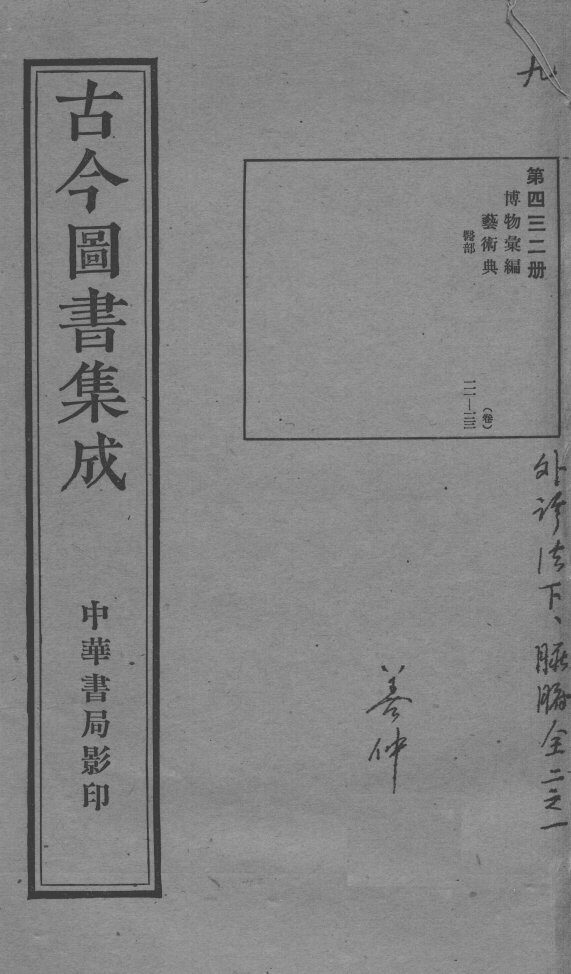 九
第四三二册
博物彙編
藝術典
醫部
(卷)
外診法下、臟腑全二之一
善仲
古今圖書集成
中華書局影印